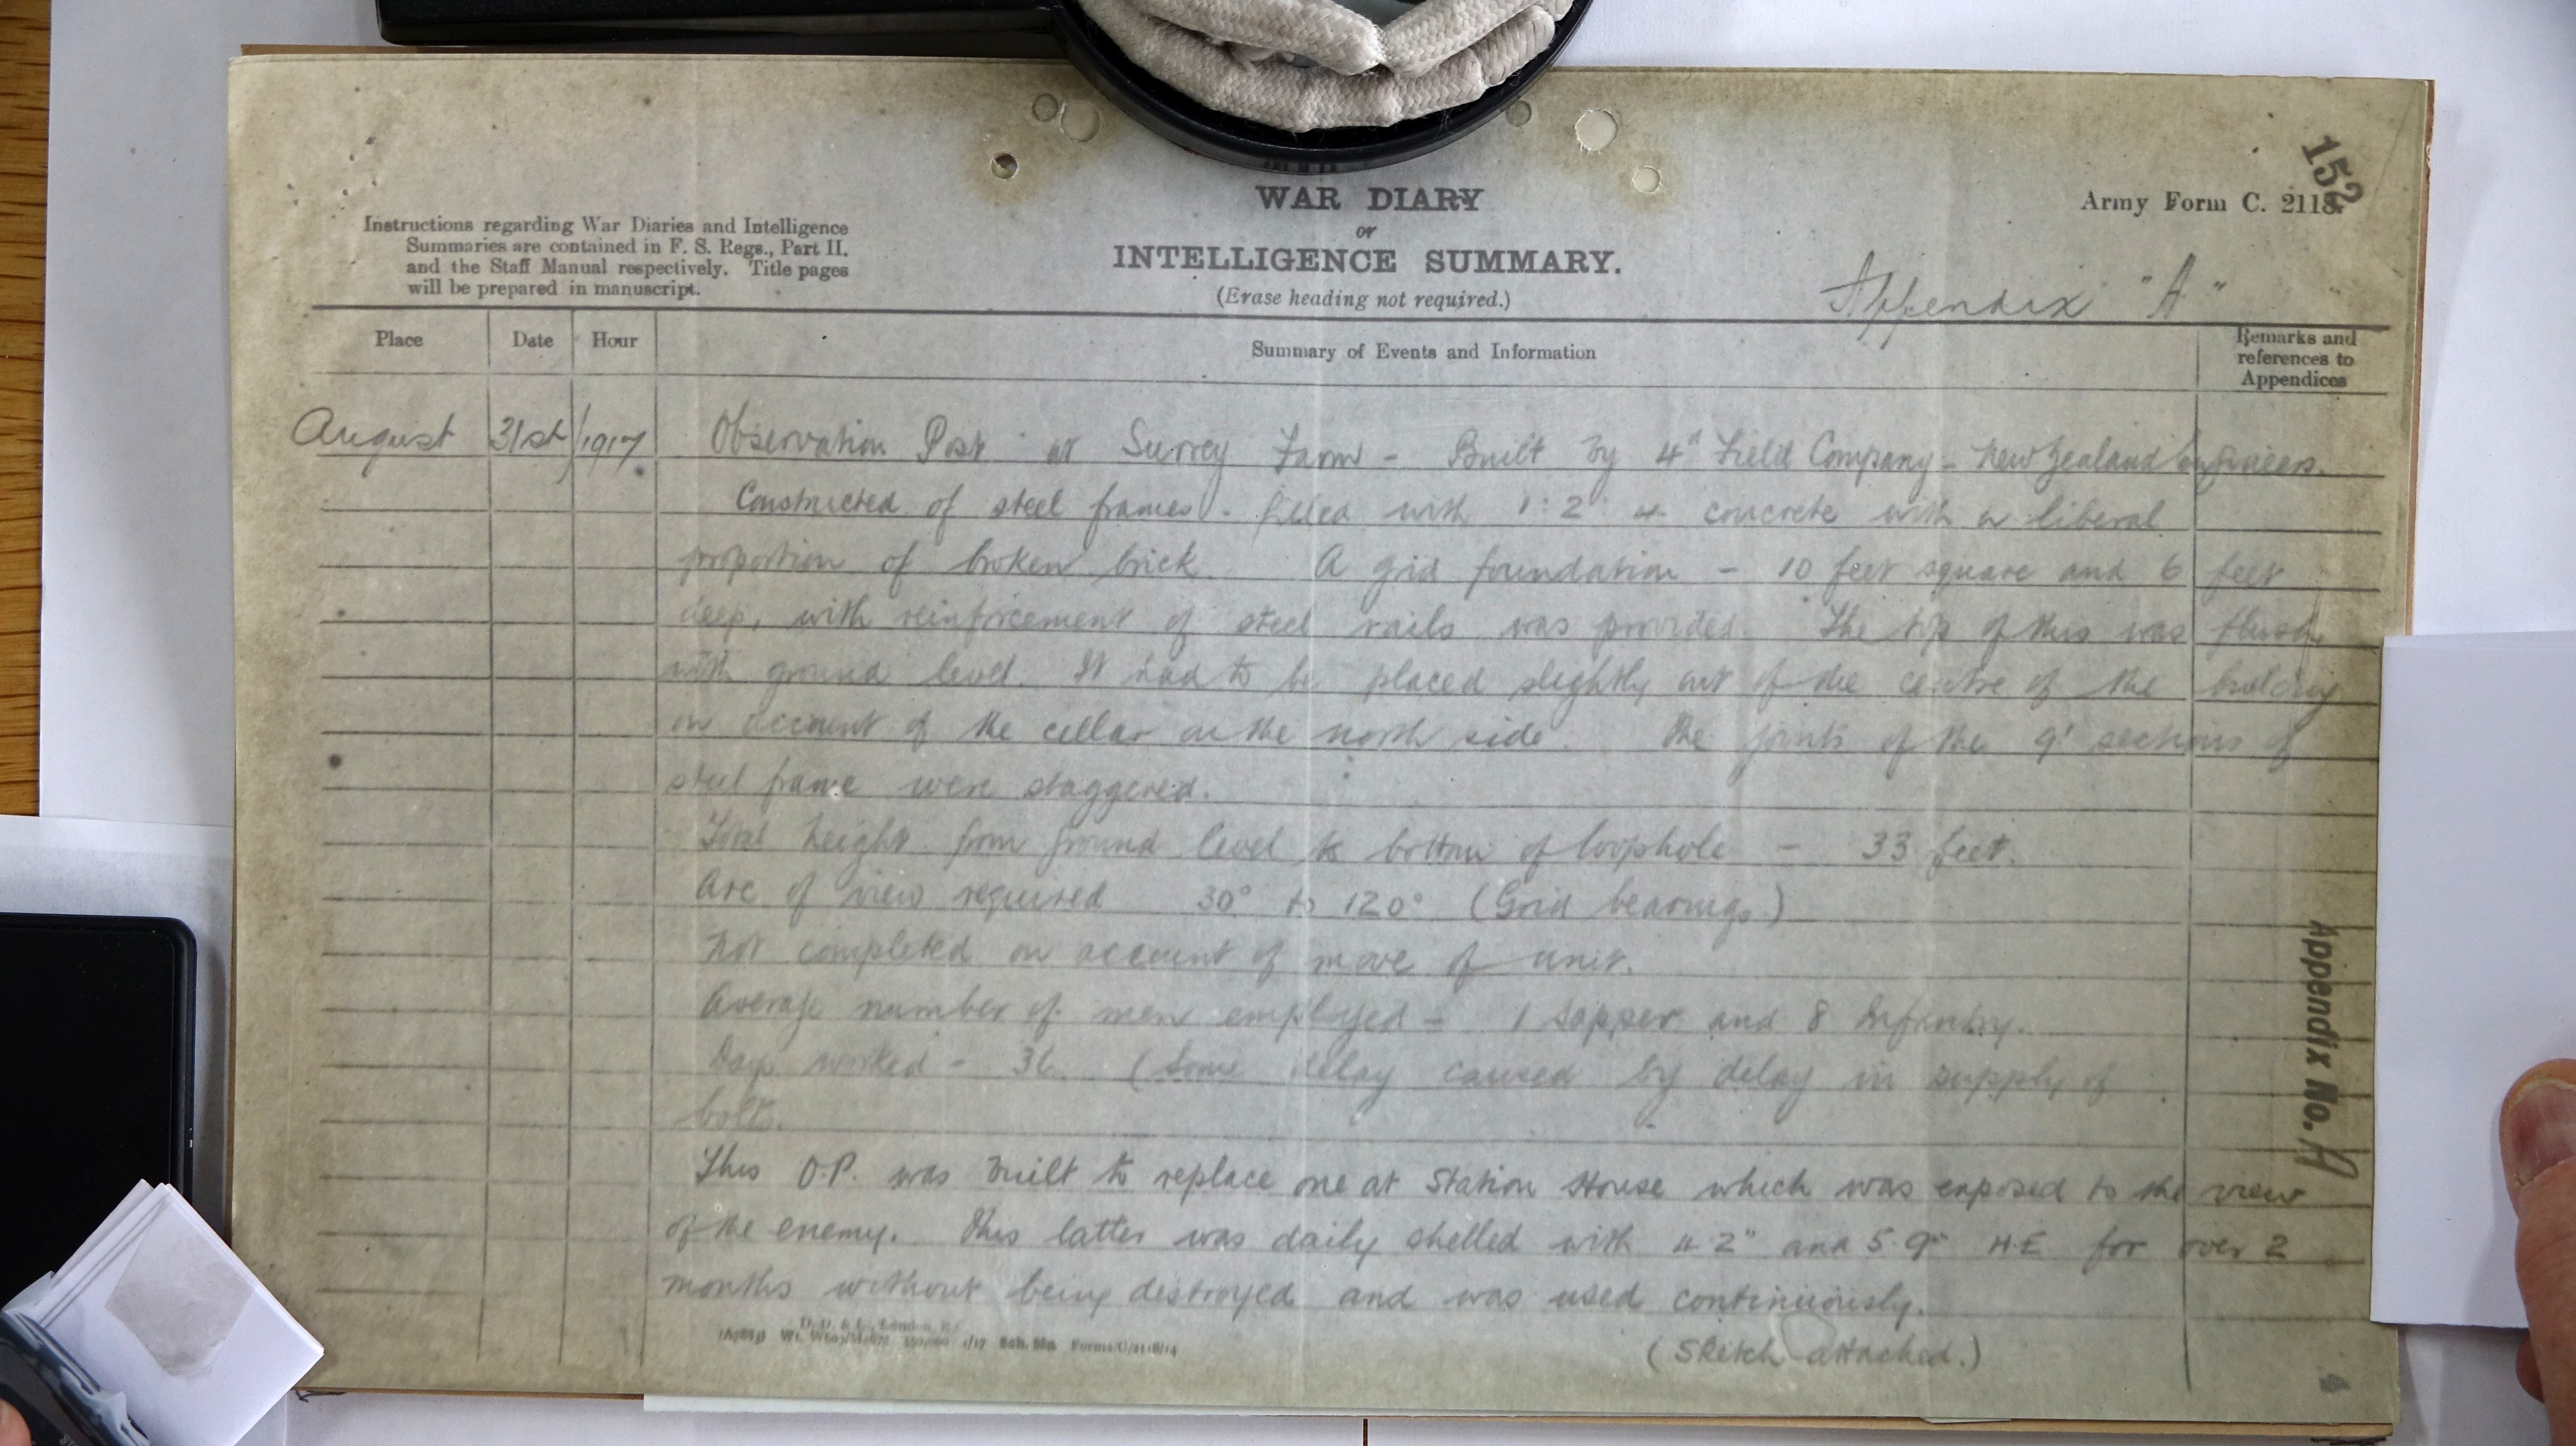 152
WAR DIARY
or
INTELLIGENCE SUMMARY.
(Erase heading not required.)
Army Form C. 2118.
Instructions regarding War Diaries and Intelligence
Summaries are contained in F. S. Regs., Part II.
and the Staff Manual respectively. Title pages
will be prepared in manuscript.
Appendix "A"
Place Date Hour Summary of Events and Information Remarks and references to Appendices
August 31st/1917 Observation Post at Surrey Farm - Built by 4th Field Company - New Zealand Engineers.
Constructed of steel frames - filled with 1:2:4 concrete with a liberal
proportion of broken brick. A grid foundation - 10 feet square and 6 feet
deep, with reinforcement of steel rails was provided. The top of this was flush
with ground level. It had to be placed slightly out of the centre of the building
on account of the cellar on the north side. The joints of the 9' sections of
steel frame were staggered.
Total height from ground level to bottom of loophole - 33 feet.
Arc of view required 30° to 120° (Grid bearings)
Not completed on account of move of unit.
Average number of men employed - 1 sapper and 8 Infantry.
Days worked - 36. (Some delay caused by delay in supply of
bolts.
This O.P. was built to replace one at Station House which was exposed to the view
of the enemy. This latter was daily shelled with 4.2" and 5.9" H.E for over 2
months without being destroyed and was used continuously.
(Sketch attached.)
Appendix No. A
D. D. & L., London, E.C.
Sch. 52a Forms/C/2118/14